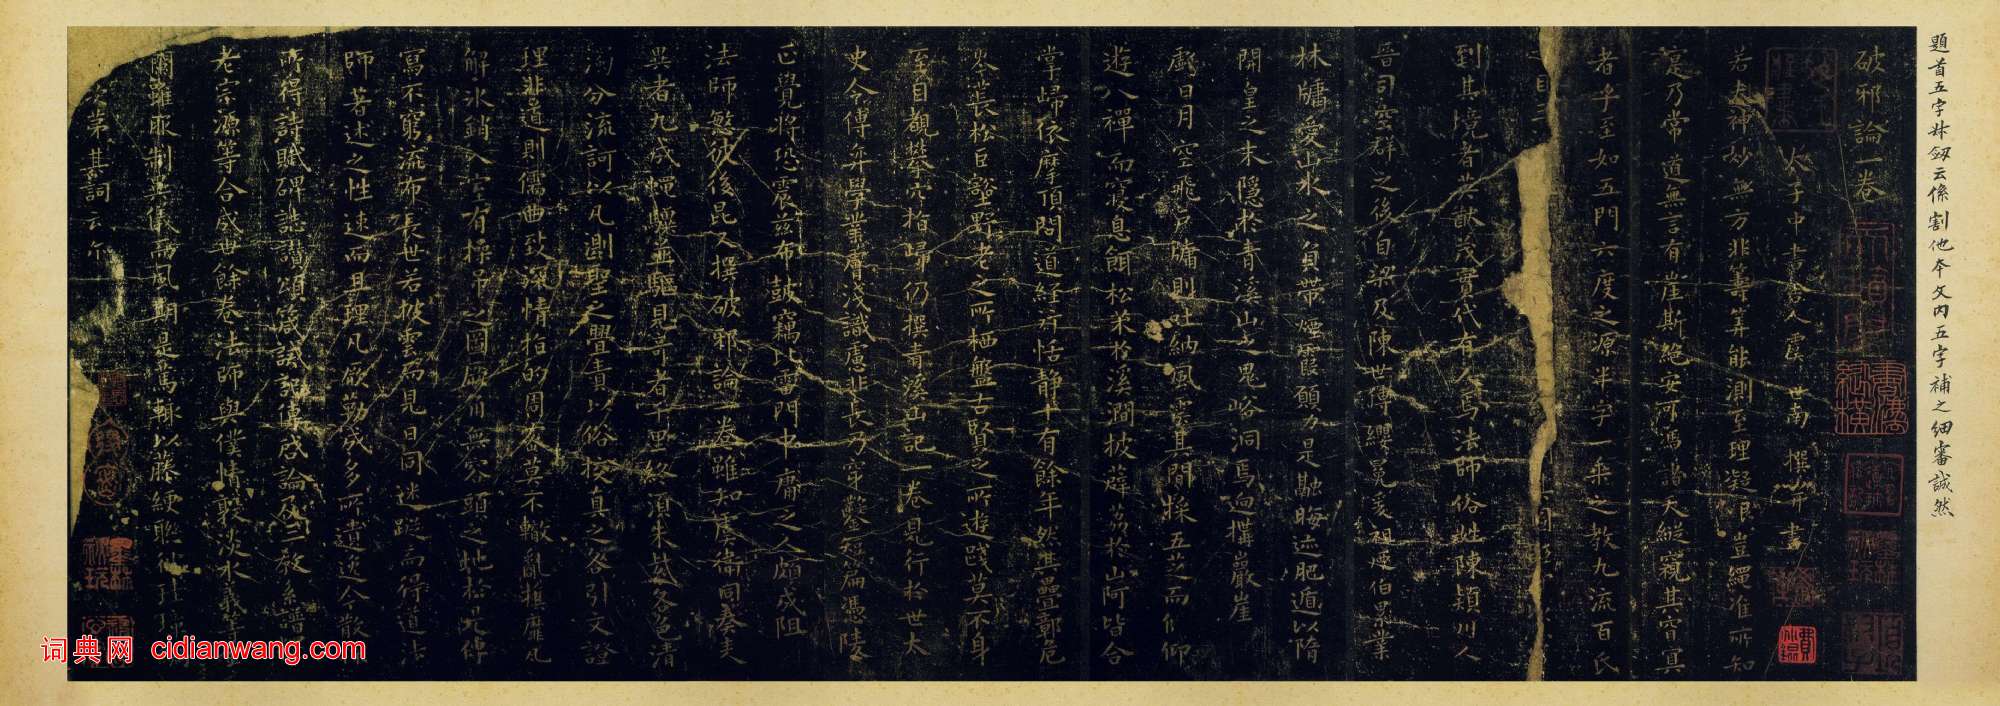 題首五字 云係割他本文内五字補之細審誠然
破邪論一卷
太子中書舍人虞世南 撰并書
若夫神妙無方非籌筭能測至理凝邈豈繩准所知
是乃常道無言有崖斯絶安可憑諸天縱窺其窅冥
者乎至如五門六度之源半字一乘之教九流百氏
之目三
到其境者英猷茂實代有人焉法師俗姓陳潁川人
晉司空群之後自梁及陳世傳纓冕爰祖逮伯累業
林牖愛山水之負帶煙霞願力是融晦迹肥遁以隋
開皇之末隱於青溪山之鬼峪洞焉迥構巖崖
戲日月空飛戶牖則吐納風雲其間採五芝而偃仰
遊八禪而寢息餌松朮於溪澗披薜荔於山阿皆合
掌歸依摩頂問道經行恬靜十有餘年然其疊鄣危
岑長松巨壑野老之所栖盤古賢之所遊踐莫不身
至目觀攀穴指歸仍撰青溪山記一卷見行於世太
史令傅弈學業膚淺識慮非長乃穿鑿短篇憑陵
正覺將恐震茲布鼓竊比雷門中庸之人頗成阻
法師愍彼後昆又撰破邪論一卷雖知虞衛同奏美
異者九成蠅驥並驅見奇者千里終須朱紫各色清
濁分流訶以凡測聖之舋責以俗校真之咎引文證
理非道則儒曲致深情指的周密莫不轍亂旗靡瓦
解冰銷入室有操矛之圖厥角無容頭之地於是傳
寫不窮流布長世若披雲而見日同迷蹤而得道法
師著述之性速而且理凡厥勒成多所遺逸今散採
所得詩賦碑誌讚頌箴誡記傳啓論及三教系譜
老宗源等合成卅餘卷法師與僕情敦淡水義等金
蘭雖服制異儀而風期是篤輒以藤緶聯彼珪璋
次第其詞云尒
詞典网 cidianwang.com